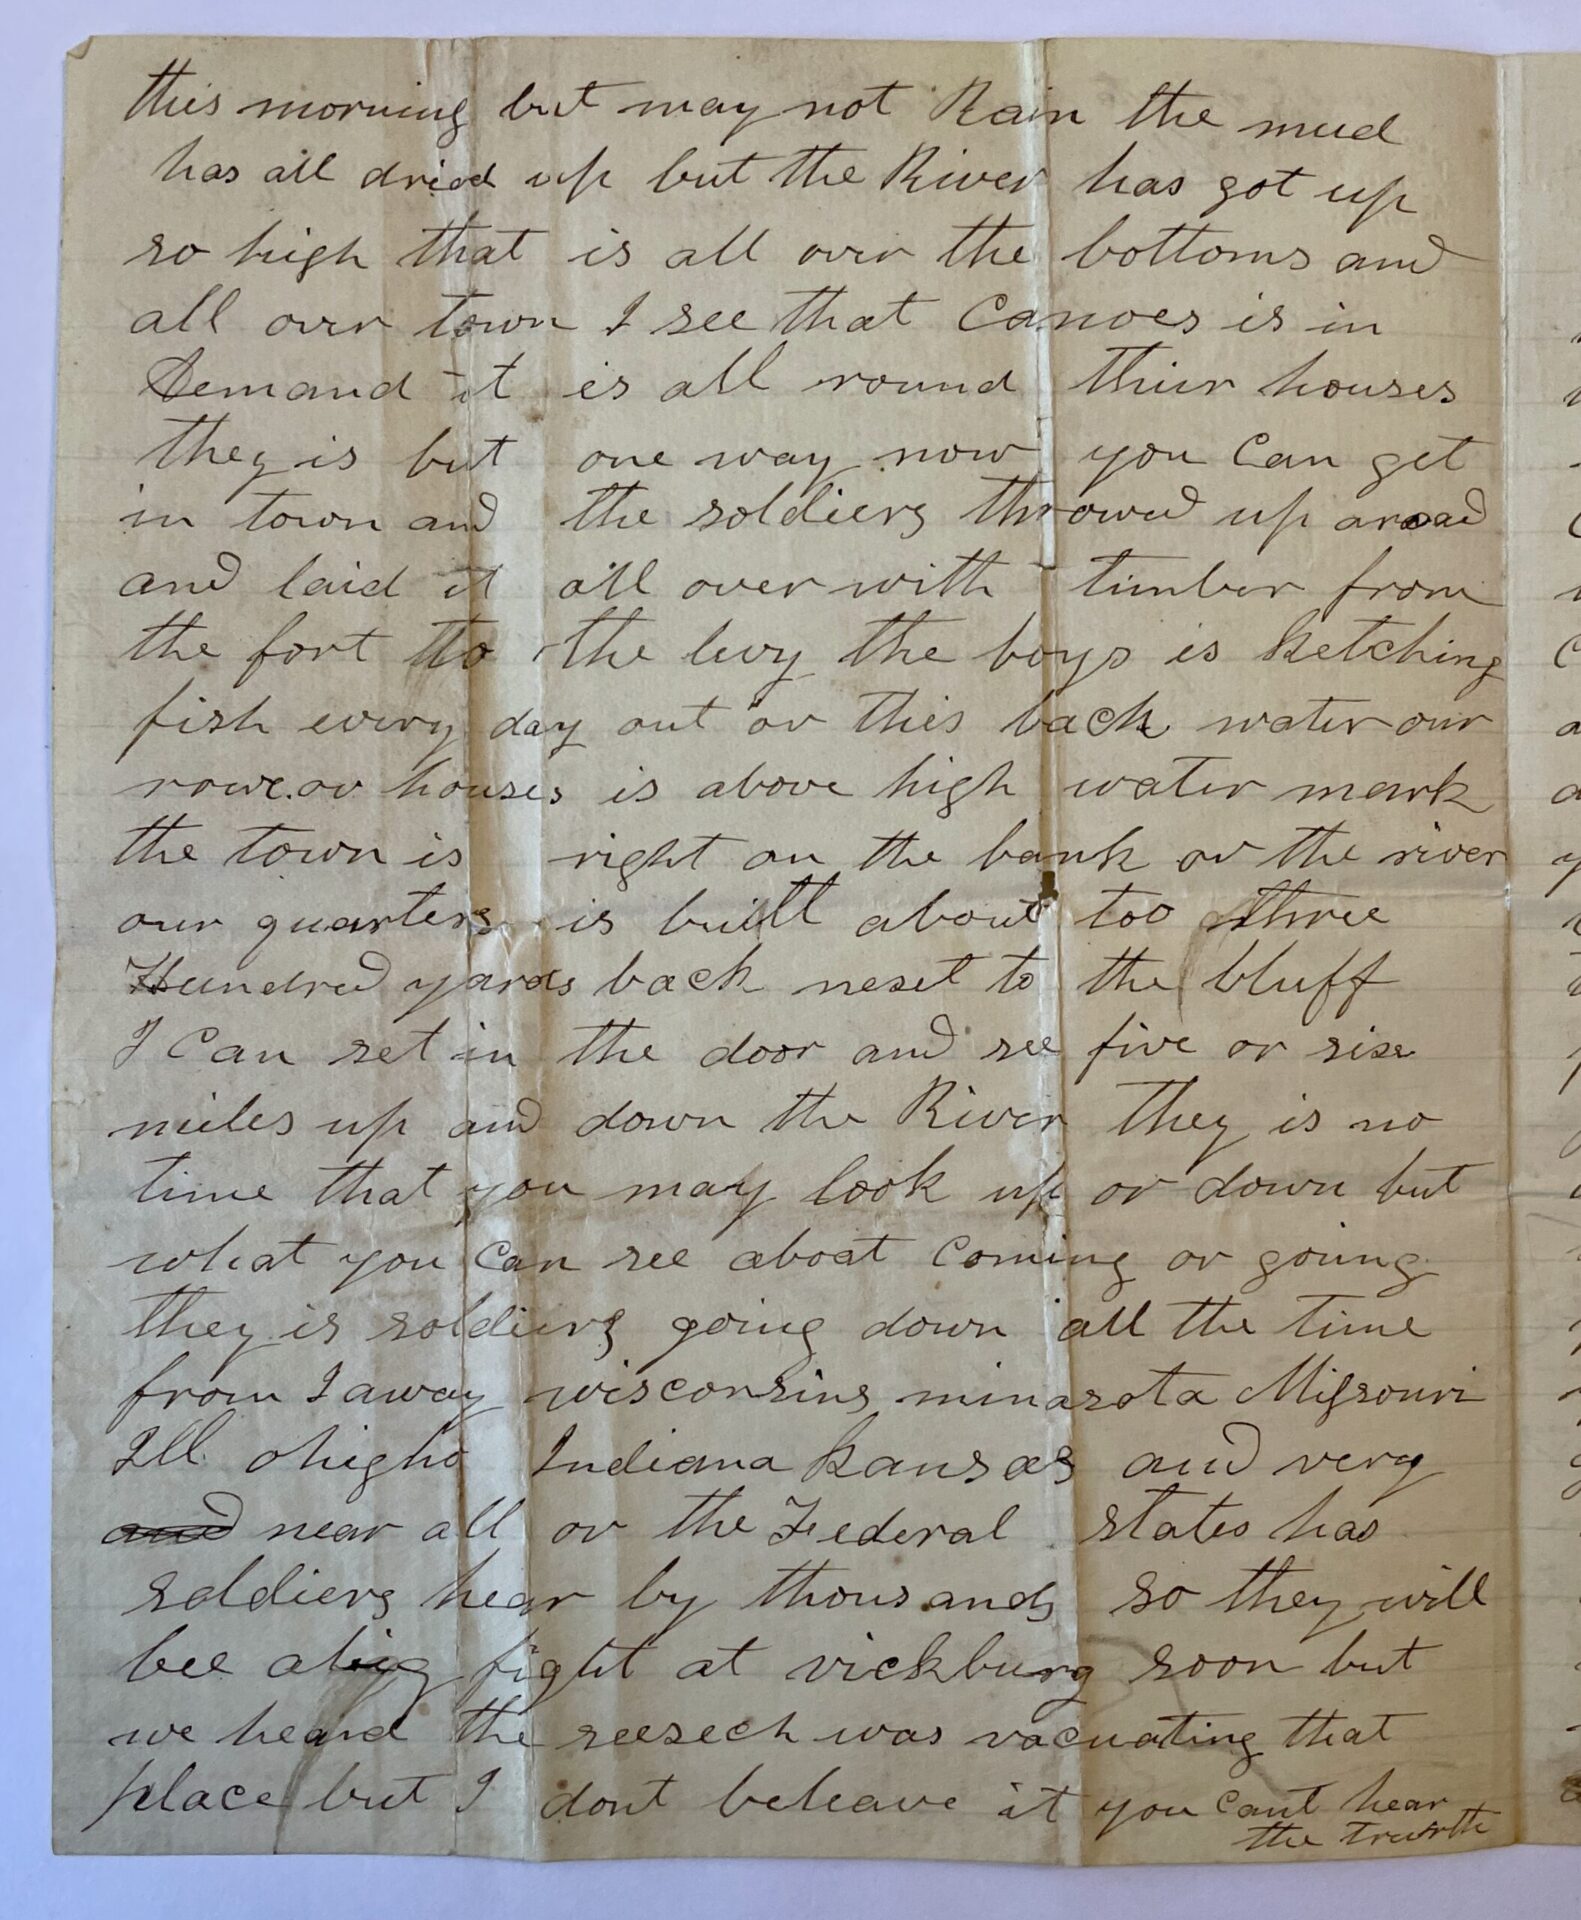 this morning but may not Rain the mud
has all dried up but the River has got up
so high that is all over the bottoms and
all over town I see that Canoes is in
demand it is all round thier houses
they is but one way now you Can get
in town and the soldiers throwed up aroad
and laid it all over with timber from
the fort to the levy the boys is Ketching
fish every day out ov this back water our
rowe ov houses is above high water mark
the town is right on the bank ov the river
our quarters is built about too three
Hundred yards back nesct to the bluff
I Can set in the door and see five or sise
miles up and down the River they is no
time that you may look up or down but
what you Can see aboat Coming or going
they is soldiers going down all the time
from Iaway wisconsins minasota Missouri
Ill ohigho Indiana Kansas and very
and near all ov the Federal states has
soldiers hear by thousands so they will
bee abig fight at vickburg soon but
we heard the seesech was vacuating that
place but I dont beleave it you cant hear
the trurth